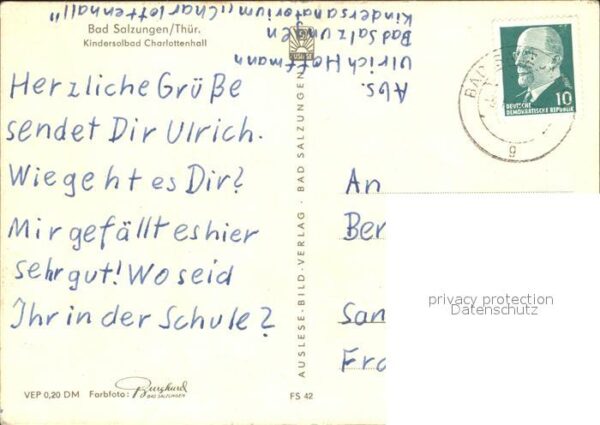 Bad Salzungen/Thür.
Kindersolbad Charlottenhall
Herzliche Grüße
sendet Dir Ulrich.
Wie geht es Dir?
Mir gefällt es hier
sehr gut! Wo seid
Ihr in der Schule?
VEP 0,20 DM Farbfoto: Burghard
BAD SALZUNGEN
FS 42
AUSLESE-BILD-VERLAG · BAD SALZUNGEN
Abs.
Ulrich Hoffmann
Bad Salzungen
Kindersanatorium „Charlottenhall"
DEUTSCHE
DEMOKRATISCHE REPUBLIK
10
BAD
g
An
Ber
San
Fra
privacy protection
Datenschutz